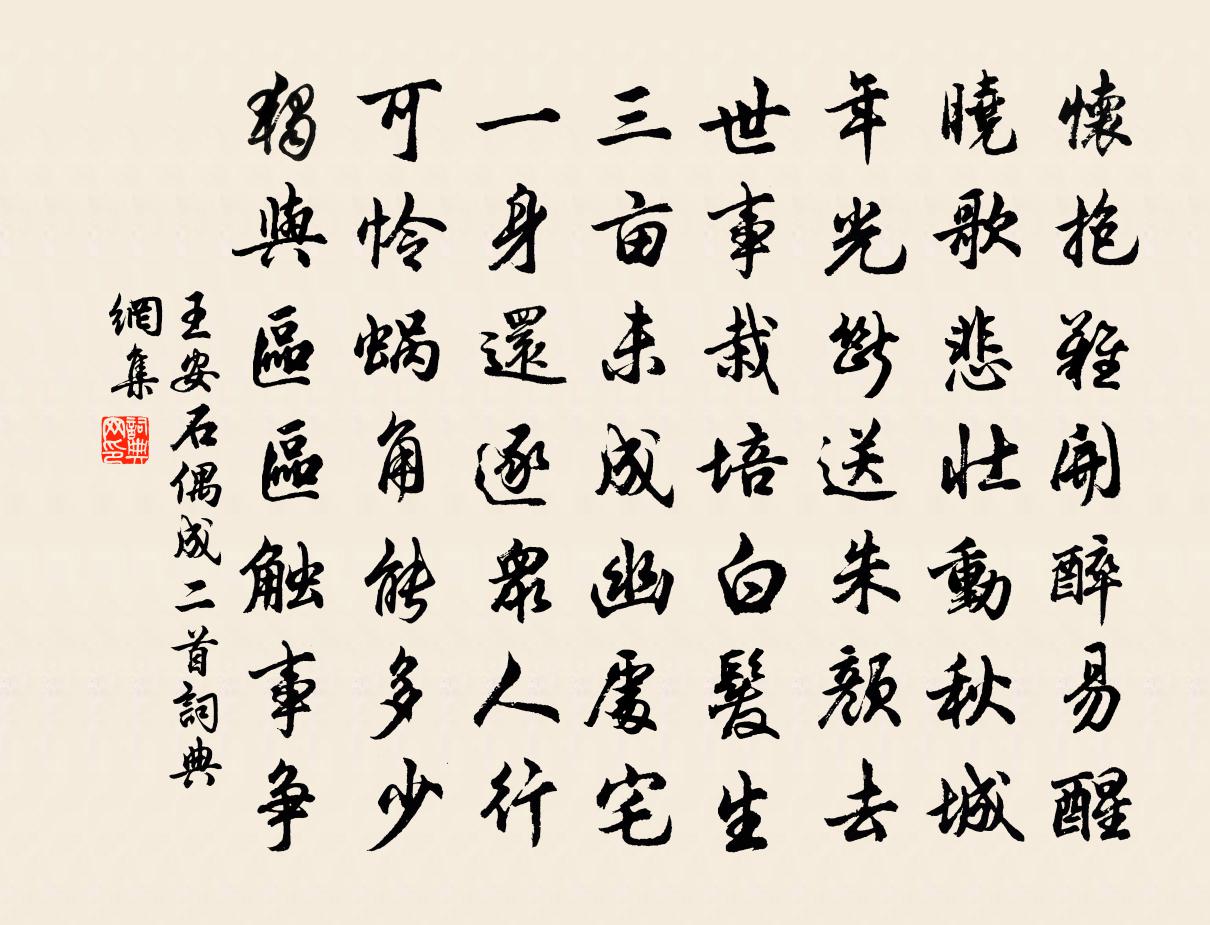 懷抱難開醉易醒
曉歌悲壯動秋城
年光斷送朱顏去
世事栽培白髮生
三亩未成幽處宅
一身還逐眾人行
可怜蜗角能多少
獨與區區触事争
王安石偶成二首詞典
網集
詞典网印